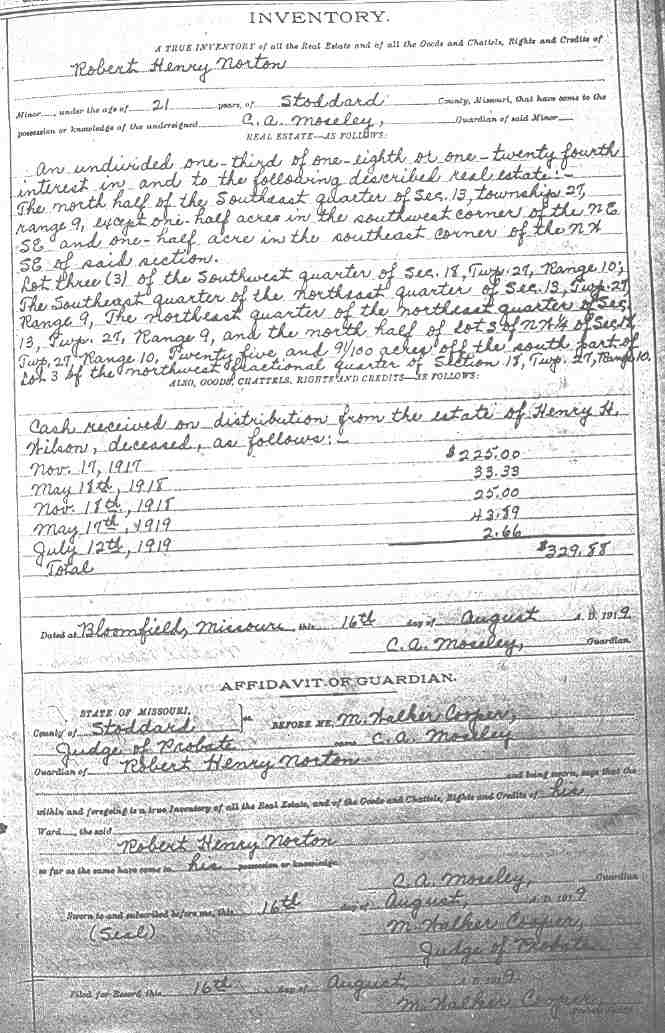 INVENTORY.
A TRUE INVENTORY of all the Real Estate and of all the Goods and Chattels, Rights and Credits of
Robert Henry Norton
Minor......, under the age of 21 years, of Stoddard County, Missouri, that have come to the
possession or knowledge of the undersigned C. A. Moseley, Guardian of said Minor
REAL ESTATE—AS FOLLOWS:
An undivided one-third of one-eighth or one-twenty fourth
interest in and to the following described real estate:-
The north half of the Southeast quarter of Sec. 13, township 27,
range 9, except one-half acres in the southwest corner of the NE
SE and one-half acre in the southeast corner of the NW
SE of said section.
Lot three (3) of the Southwest quarter of Sec. 18, Twp. 27, Range 10;
The Southeast quarter of the northeast quarter of Sec. 13, Twp. 27
Range 9, The northeast quarter of the northeast quarter of Sec.
13, Twp. 27, Range 9, and the north half of Lot 3 of N.W.¼ of Sec. 18,
Twp. 27, Range 10, Twenty five and 91/100 acres off the south part of
Lot 3 of the northwest fractional quarter of Section 18, Twp. 27, Range 10.
ALSO, GOODS, CHATTELS, RIGHTS AND CREDITS—AS FOLLOWS:
Cash received on distribution from the estate of Henry H.
Wilson, deceased, as follows:-
Nov. 17, 1917 $225.00
May 18th, 1918 33.33
Nov. 18th, 1918 25.00
May 17th, 1919 43.89
July 12th, 1919 2.66
Total $329.88
Dated at Bloomfield, Missouri, this 16th day of August A. D. 1919
C. A. Moseley, Guardian.
AFFIDAVIT OF GUARDIAN.
STATE OF MISSOURI,
County of Stoddard ss. BEFORE ME, M. Walker Cooper,
Judge of Probate came C. A. Moseley
Guardian of Robert Henry Norton
and being sworn, says that the
within and foregoing is a true Inventory of all the Real Estate, and of the Goods and Chattels, Rights and Credits of his
Ward......, the said
Robert Henry Norton
so far as the same have come to his possession or knowledge.
C. A. Moseley, Guardian
Sworn to and subscribed before me, this 16th day of August, A. D. 1919
(Seal) M. Walker Cooper,
Judge of Probate
Filed for Record this 16th day of August, A. D. 1919.
M. Walker Cooper,
Probate